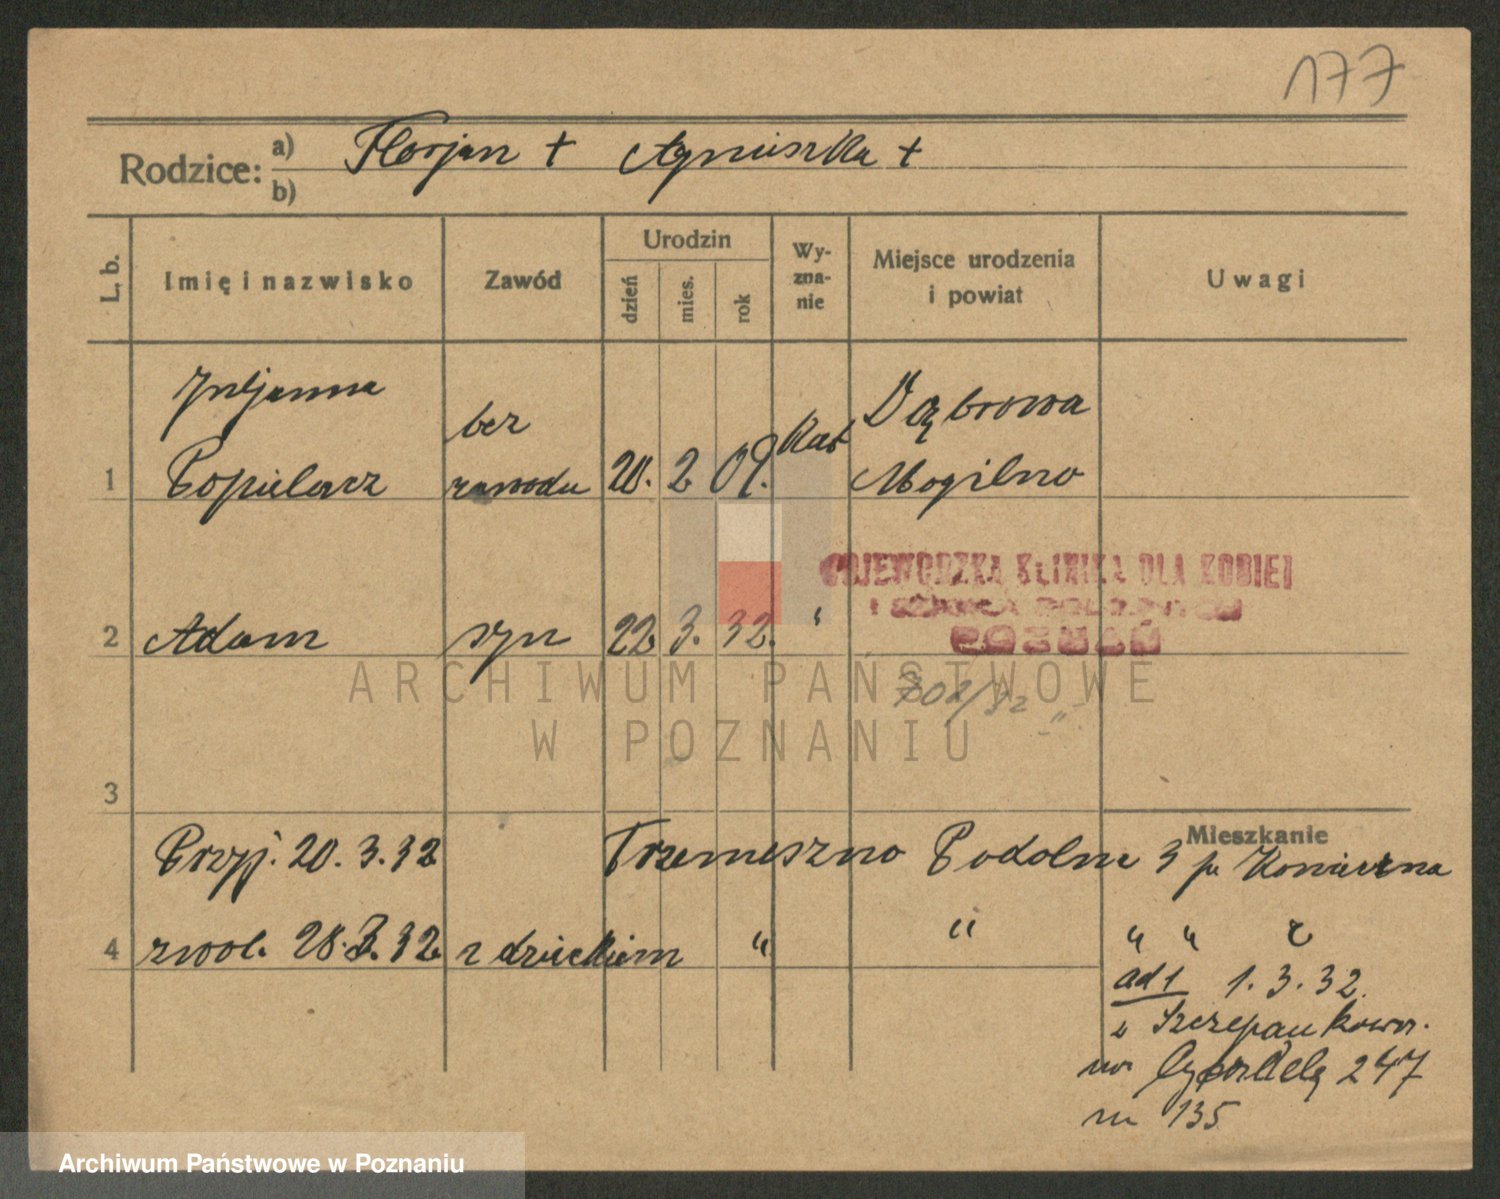 177
Rodzice: a) Florjan + Agnieszka +
b)
L. b. Imię i nazwisko Zawód Urodzin dzień mies. rok Wy-zna-nie Miejsce urodzenia i powiat Uwagi
Juljanna bez Kat Dąbrowa
1 Popielarz zawodu 20. 2 09. Mogilno
WOJEWÓDZKA KLINIKA DLA KOBIET
POZNAŃ
2 Adam syn 22 3. 32. "
ARCHIWUM PAŃSTWOWE
W POZNANIU
702/32 "
3
Mieszkanie
Przyj. 20. 3. 32 Trzemeszno Podolne 3 p.
4 zwol. 28. 3. 32 z dzieckiem " " " "
ad 1 1. 3. 32.
z Szczepankowa
na 247
135
Archiwum Państwowe w Poznaniu